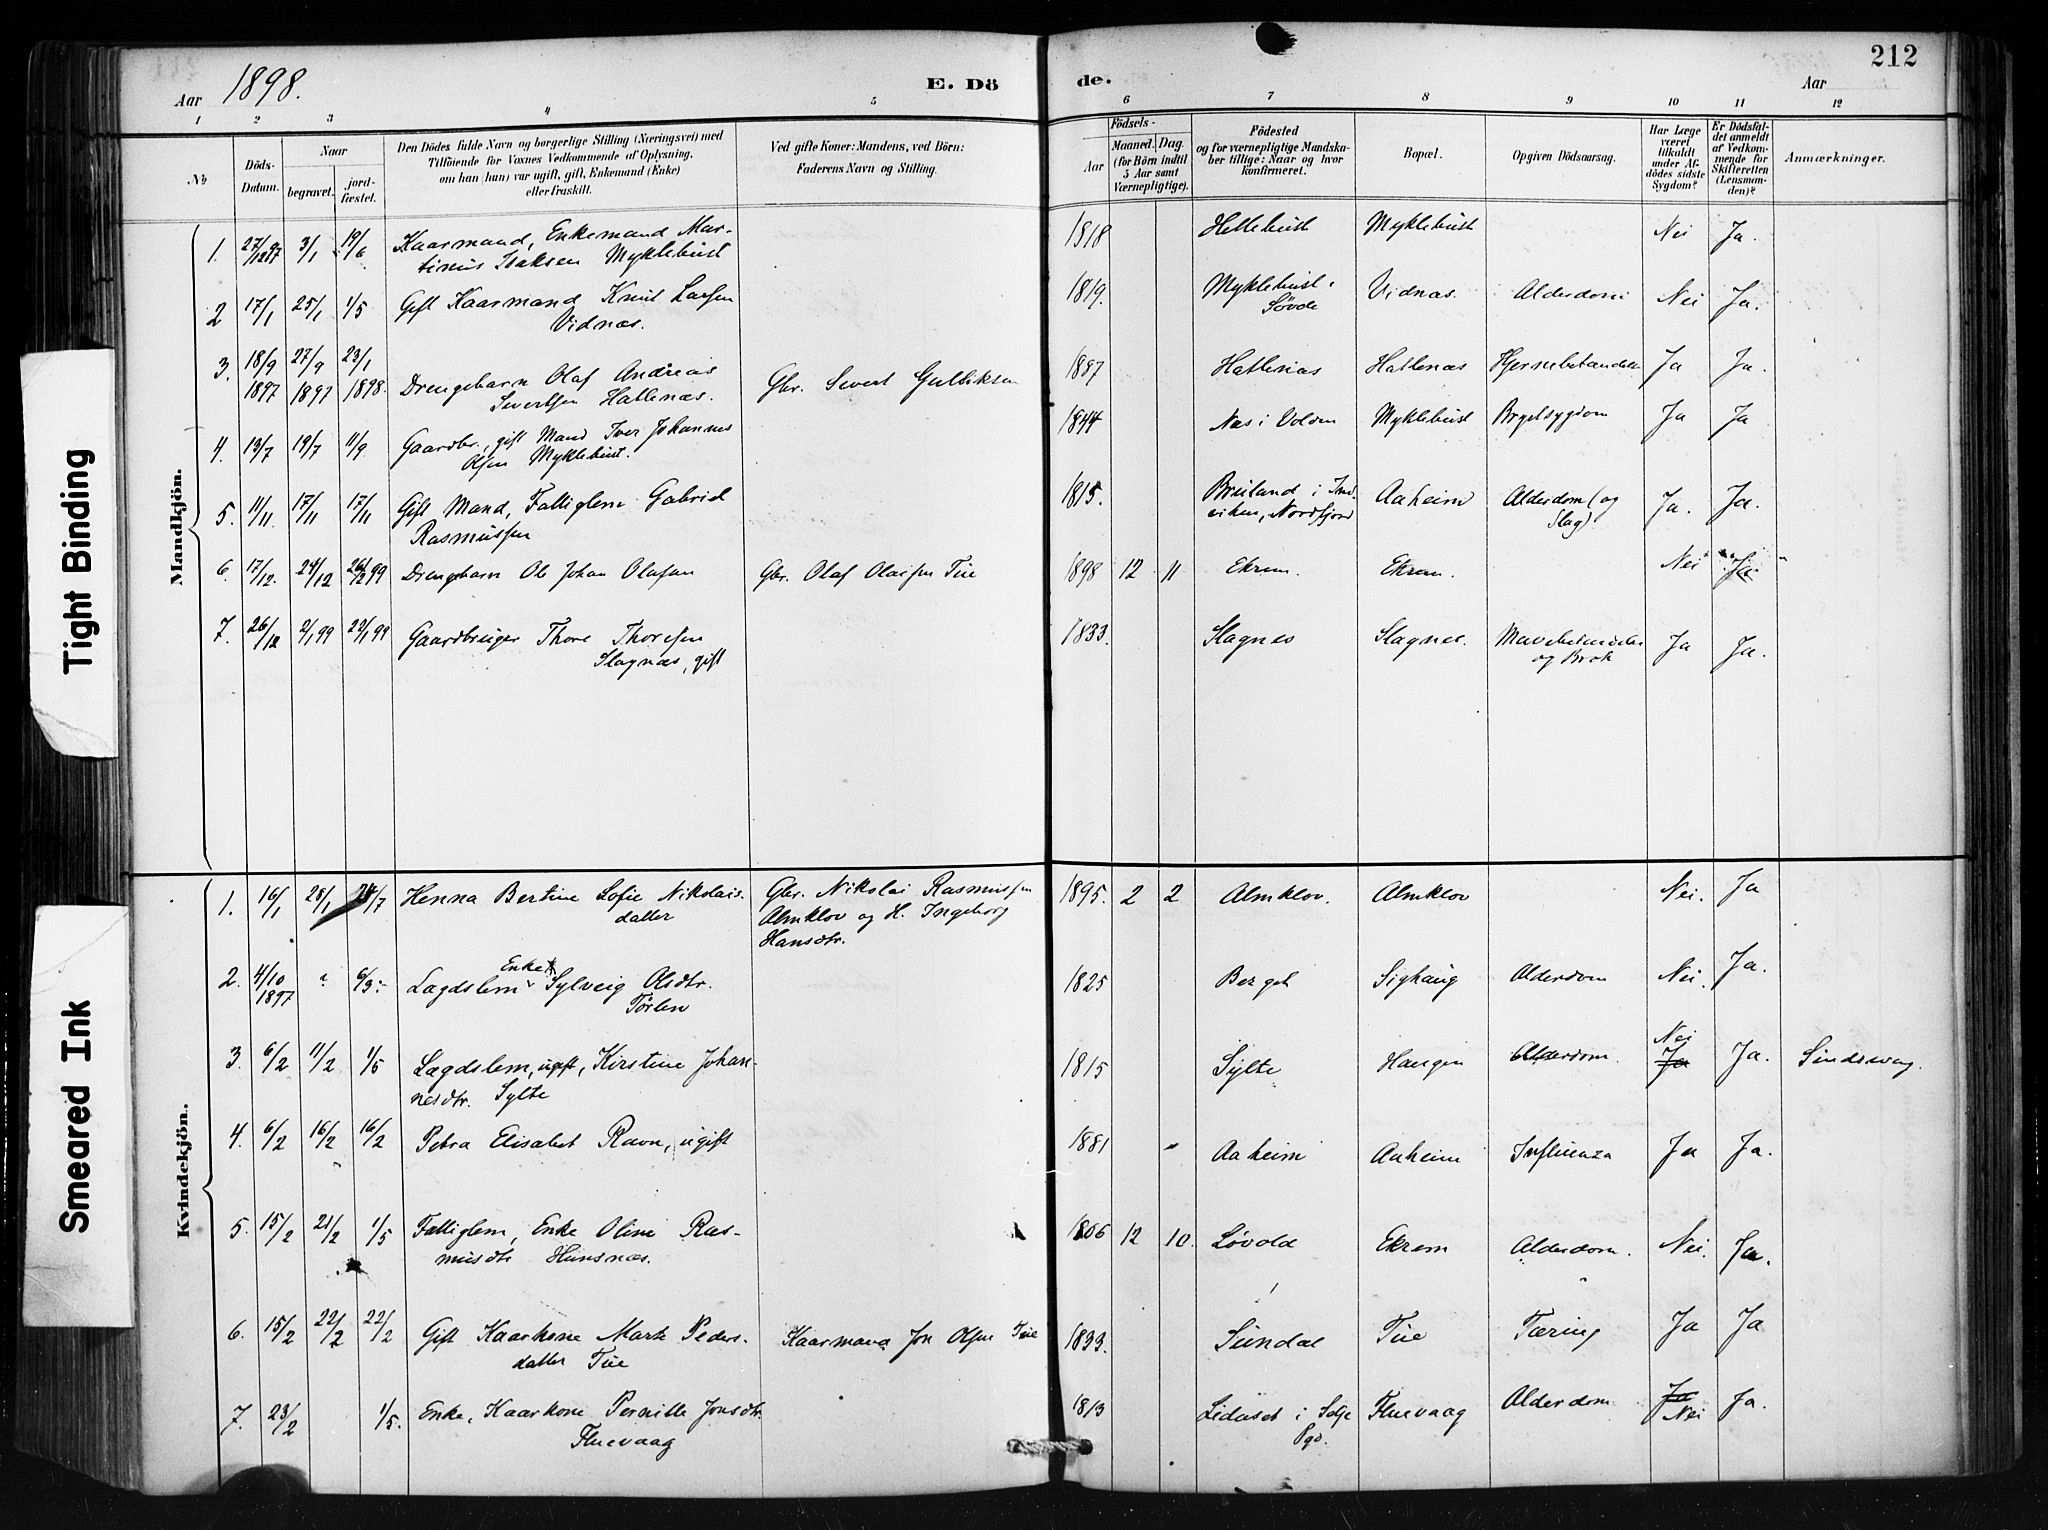 Tight Binding
Smeared Ink
Aar 1898.
E. Dö
de.
212
Aar
1 2 3 4 5 6 7 8 9 10 11 12
No
Döds-
Datum.
Naar
begravet.
jord-
fæstet.
Den Dödes fulde Navn og borgerlige Stilling (Næringsvei) med
Tilföiende for Voxnes Vedkommende af Oplysning,
om han (hun) var ugift, gift, Enkemand (Enke)
eller fraskilt.
Ved gifte Koner: Mandens, ved Börn:
Faderens Navn og Stilling.
Födsels-
Aar
Maaned. Dag.
(for Börn indtil
5 Aar samt
Værnepligtige).
Födested
og for værnepligtige Mandska-
ber tillige: Naar og hvor
konfirmeret.
Bopæl.
Opgiven Dödsaarsag.
Har Læge
været
tilkaldt
under Af-
dödes sidste
Sygdom?
Er Dödsfal-
det anmeldt
af Vedkom-
mende for
Skifteretten
(Lensman-
den)?
Anmærkninger.
Mandkjön.
1. 27/12 97 3/1 19/6 Kaarmand, Enkemand Mar-
tinus Isaksen Myklebust
1818 Hellebust Myklebust Nei Ja.
2 17/1 25/1 1/5 Gift Kaarmand Knut Larsen
Vidnæs.
1819. Myklebust i
Søvde
Vidnæs. Alderdom Nei Ja.
3. 18/9 1897 27/9 1897 23/1 1898. Drengebarn Olaf Andreas
Sivertsen Hattenæs.
Gbr. Sivert Gulliksen
1887 Hatlenæs Hatlenæs Hjernebetændelse Ja Ja.
4. 13/7 19/7 11/9 Gaardbr., gift Mand Iver Johannes
Olsen Myklebust.
1844 Næs i Volden Myklebust Brystsygdom Ja Ja
5. 11/11 17/11 17/11 Gift Mand, Fattiglem Gabriel
Rasmussen
1815. Breiland i Ind
viken, Nordfjord
Aaheim Alderdom (og
Slag)
Ja. Ja.
6. 17/12. 24/12 26/2 99 Drengebarn Ole Johan Olafsen
Gbr. Olaf Olaisen Tue
1898 12 11 Ekrem. Ekrem. Nei Ja
7. 26/12 2/1 99 22/1 99 Gaardbruger Thore Thoresen
Slagnæs, gift
1833. Slagnes Slagnes. Mavebetændelse
og Brok
Ja Ja.
Kvindekjön.
1. 16/1 25/1 /7 Henna Bertine Sofie Nikolais-
datter
Gbr. Nikolai Rasmussen
Almklov og H. Ingeborg
Hansdtr.
1895. 2 2 Almklov. Almklov Nei. Ja
2. 4/10 1897 " 6/3 Lægdslem Enke Sylveig Olsdtr.
Tørlen
1825 Berget Sighaug Alderdom Nei. Ja.
3. 6/2 11/2 1/5 Lægdslem, ugift, Kirstine Johan-
nesdtr. Sylte
1815 Sylte Haugen Alderdom. Nei
Ja Ja. Sindssvag.
4. 6/2 16/2 16/2 Petra Elisabet Ravn, ugift
1881 " Aaheim Aaheim Influenza Ja Ja.
5. 15/2 21/2 1/5 Fattiglem, Enke Oline Ras-
musdtr Hunsnæs.
1806 12 10. Løvold Ekrem Alderdom. Nei. Ja.
6. 15/2 22/2 22/2 Gift Kaarkone Marte Peders-
datter Tue
Kaarmand Jon Olsen Tue
1833. Sundal Tue Tæring Ja Ja
7. 23/2 1/5. Enke, Kaarkone Pernille Jonsdtr.
Fluevaag
1813 Lidaset i Selje
Pgd.
Fluevaag Alderdom Ja
Nei Ja.